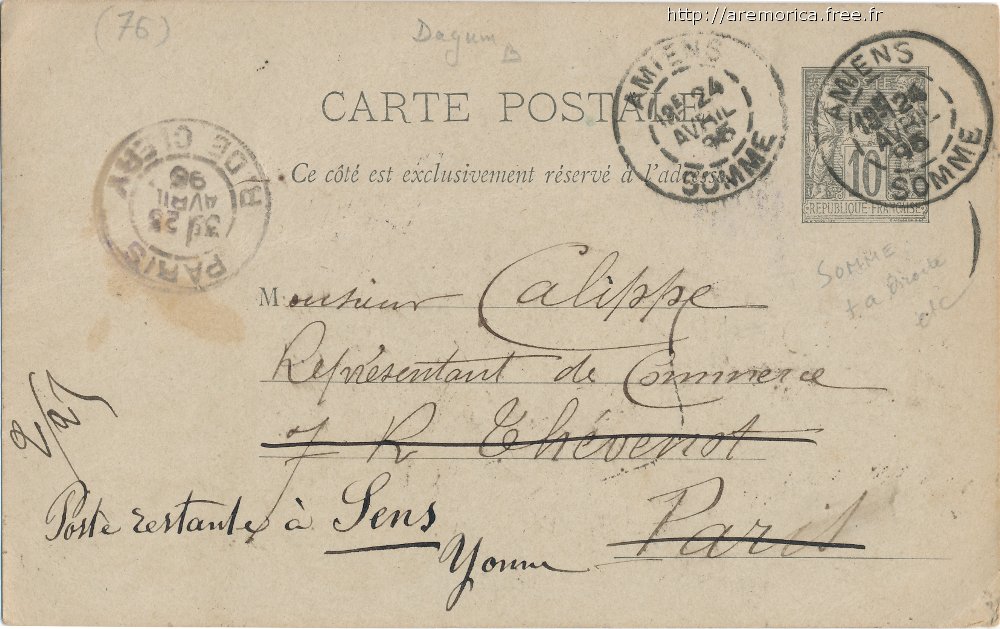 http://aremorica.free.fr
(76)
Dagum
AMIENS
24
AVRIL
95
SOMME
AMIENS
24
AVRIL
95
SOMME
CARTE POSTALE
Ce côté est exclusivement réservé à l'adresse
10
REPUBLIQUE FRANÇAISE
PARIS
R. DE CLERY
25
AVRIL
95
SOMME
Monsieur Calippe
Représentant de Commerce
7 R Thévenot
Paris
Poste restante à Sens
Yonne